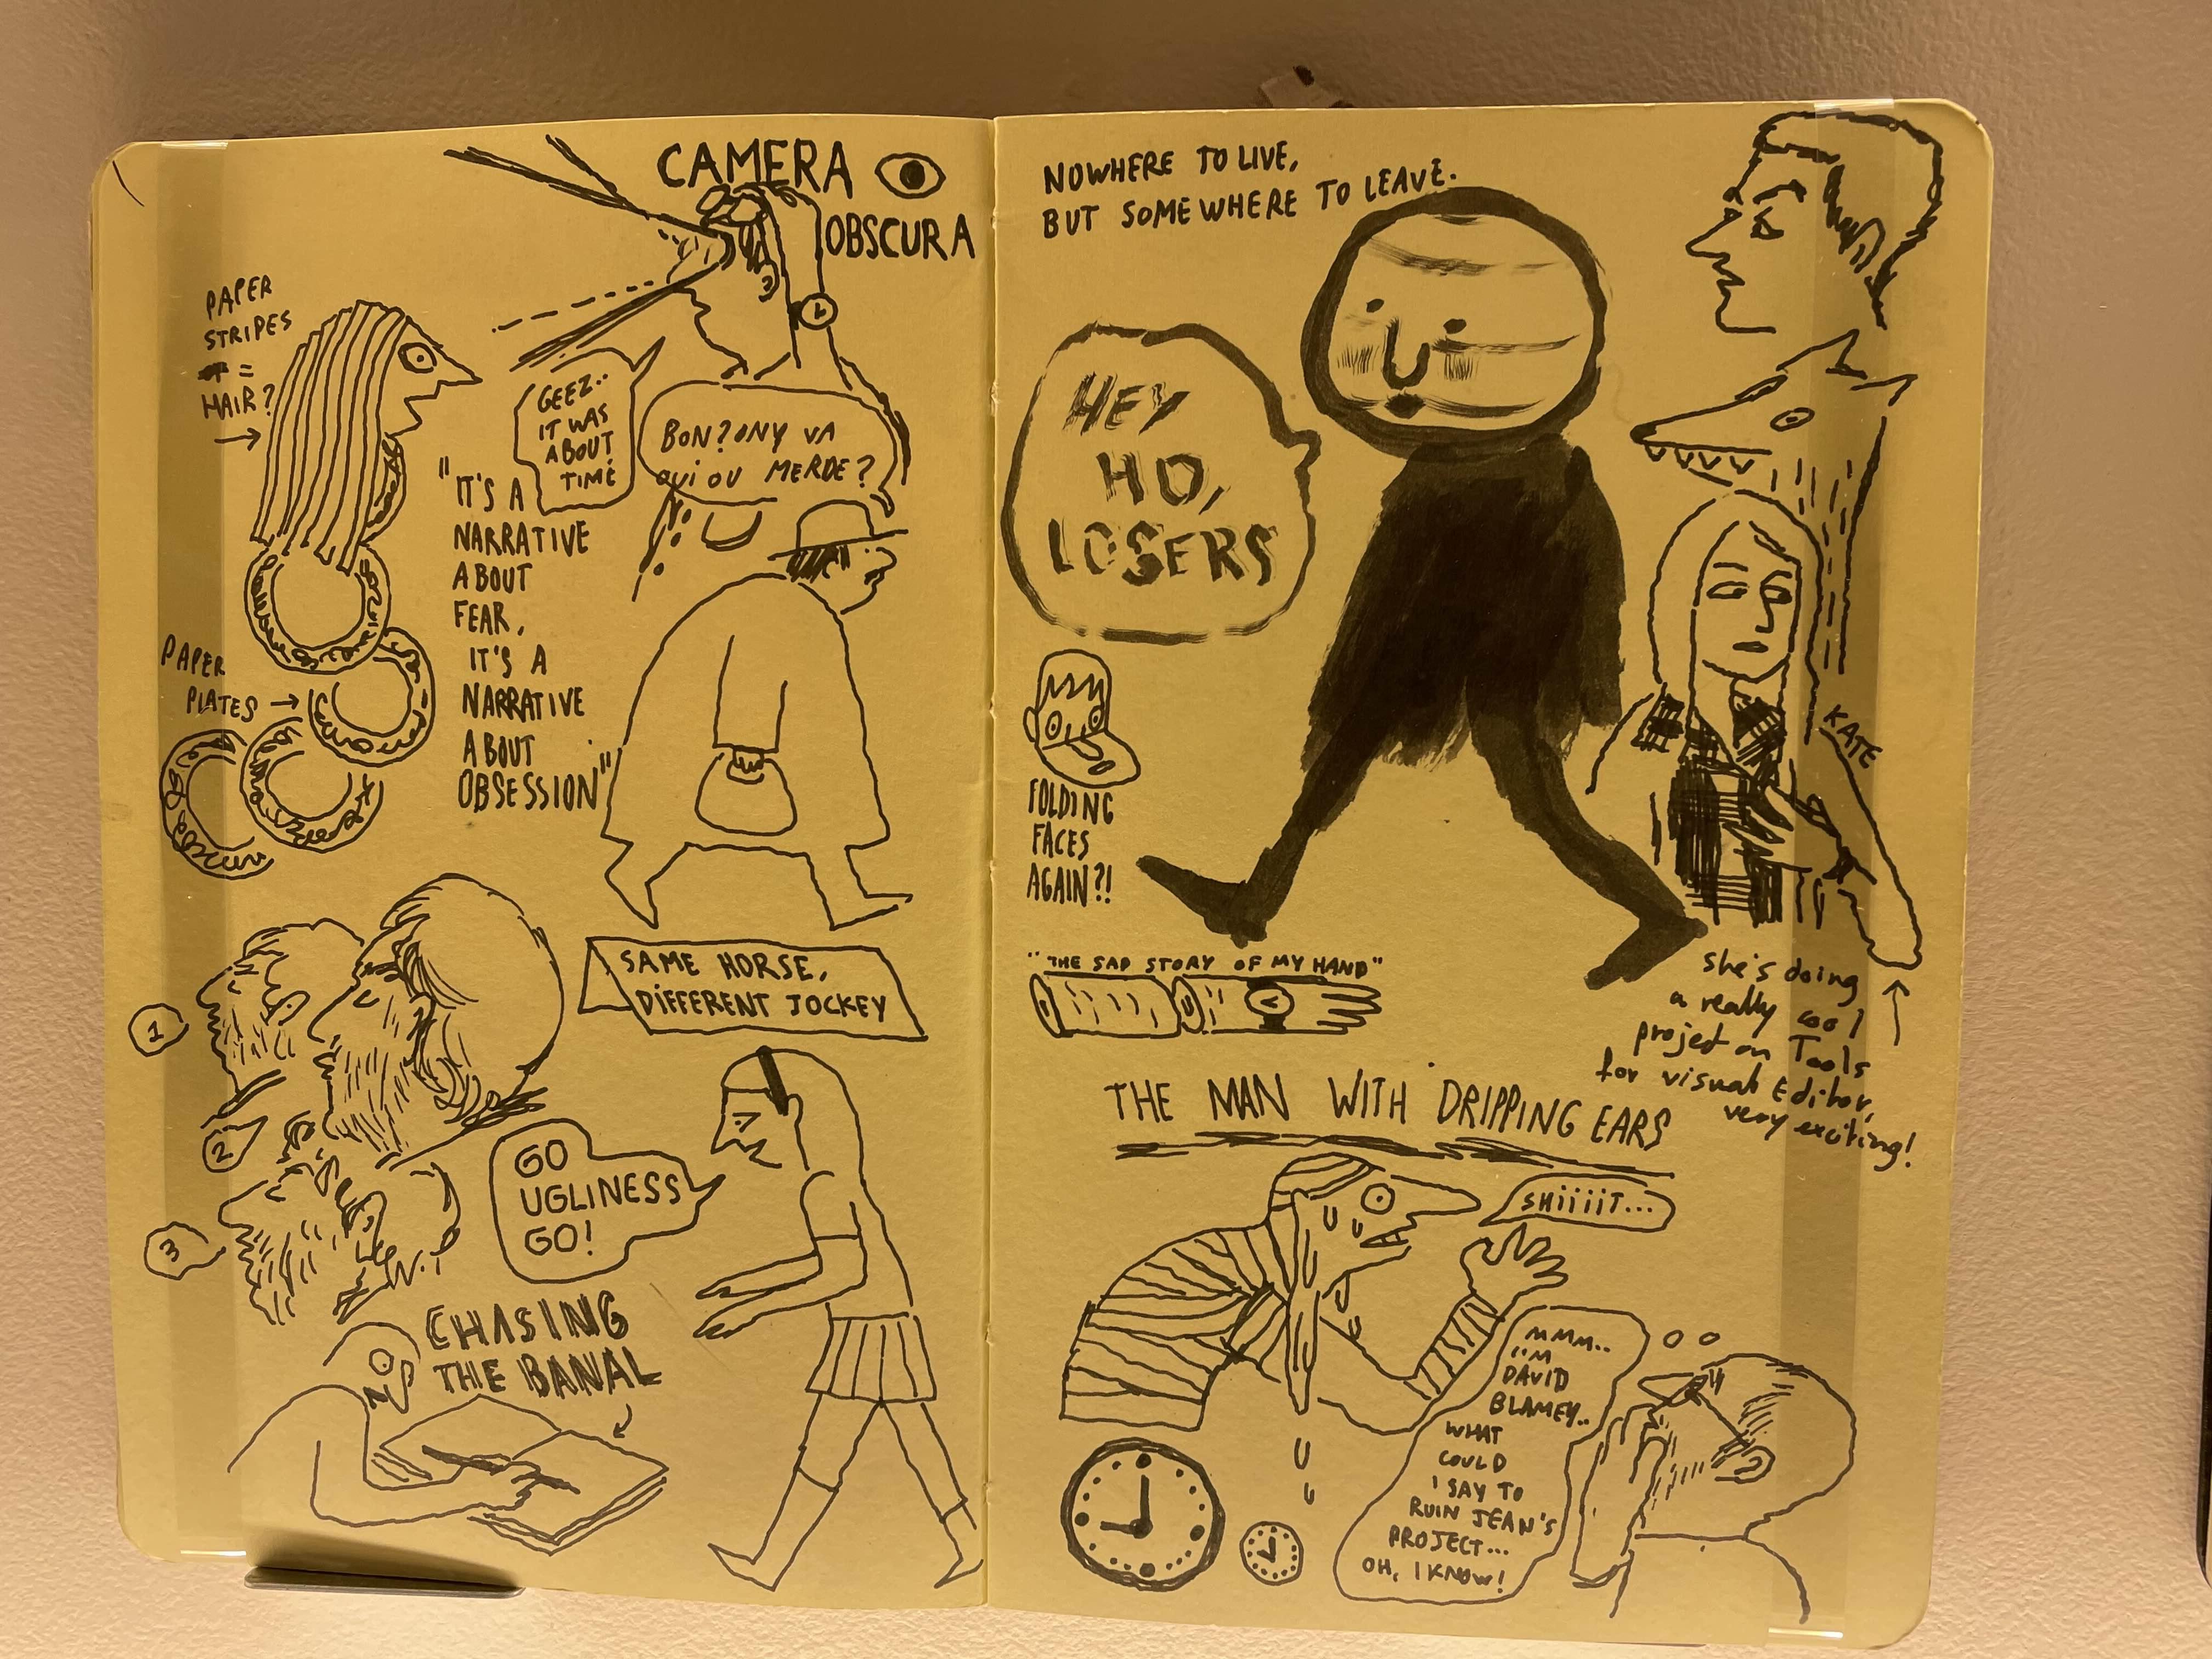 CAMERA
OBSCURA
PAPER
STRIPES
=
HAIR?
GEEZ..
IT WAS
ABOUT
TIME
BON? ONY VA
OUI OU MERDE?
"IT'S A
NARRATIVE
ABOUT
FEAR,
IT'S A
NARRATIVE
ABOUT
OBSESSION"
PAPER
PLATES
SAME HORSE,
DIFFERENT JOCKEY
1
2
3
GO
UGLINESS
GO!
CHASING
THE BANAL
NOWHERE TO LIVE,
BUT SOMEWHERE TO LEAVE.
HEY
HO,
LOSERS
FOLDING
FACES
AGAIN?!
KATE
"THE SAD STORY OF MY HAND"
she's doing
a really cool
project on Tools
for visual Editor,
very exciting!
THE MAN WITH DRIPPING EARS
SHiiiiT...
MMM..
I'M
DAVID
BLAMEY..
WHAT
COULD
I SAY TO
RUIN JEAN'S
PROJECT...
OH, I KNOW!